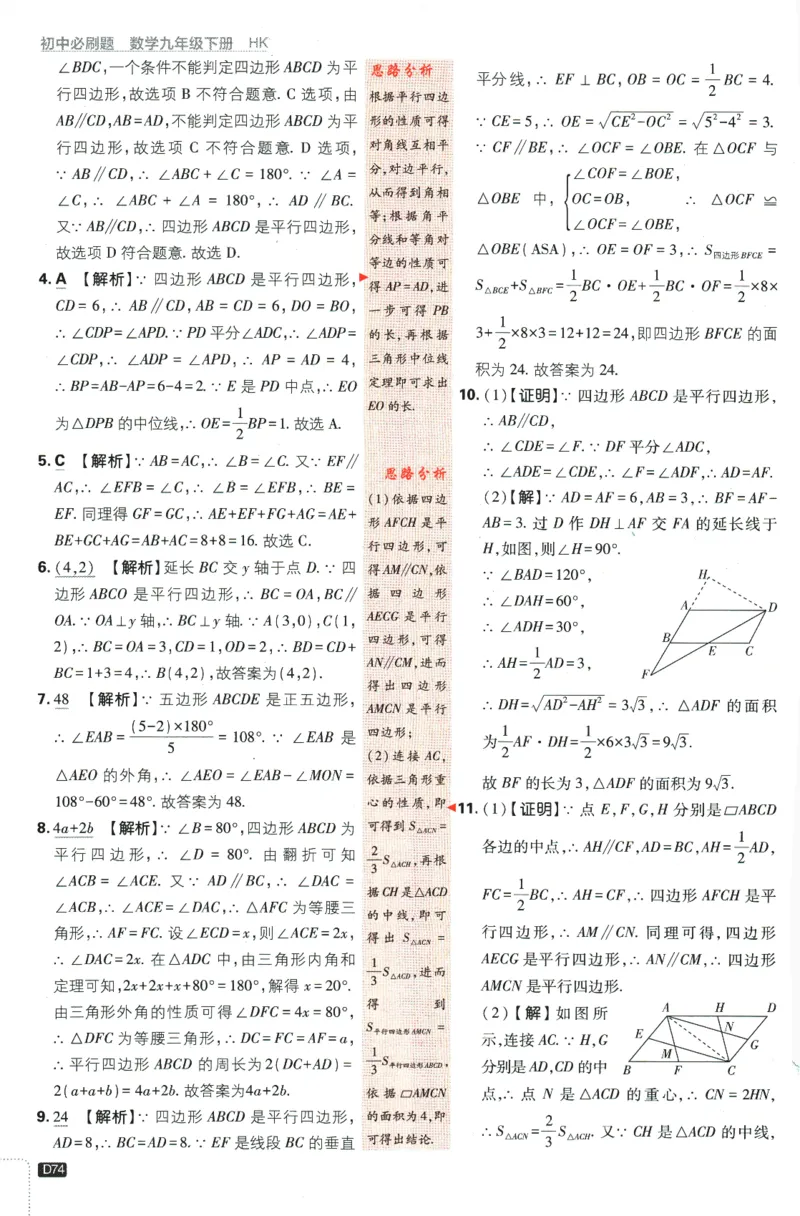 初中必刷题 数学九年级下册 HK
∠BDC,一个条件不能判定四边形 ABCD 为平
行四边形,故选项 B 不符合题意. C 选项,由
AB∥CD,AB=AD,不能判定四边形 ABCD 为平
行四边形,故选项 C 不符合题意. D 选项,
∵ AB∥CD,∴ ∠ABC+∠C=180°. ∵ ∠A=
∠C,∴ ∠ABC+∠A=180°,∴ AD∥BC.
又∵ AB∥CD,∴ 四边形 ABCD 是平行四边形,
故选项 D 符合题意. 故选 D.
4. A 【解析】∵ 四边形 ABCD 是平行四边形,
CD=6,∴ AB∥CD,AB=CD=6,DO=BO,
∴ ∠CDP=∠APD. ∵ PD 平分∠ADC,∴ ∠ADP=
∠CDP,∴ ∠ADP=∠APD,∴ AP=AD=4,
∴ BP=AB-AP=6-4=2. ∵ E 是 PD 中点,∴ EO
为△DPB 的中位线,∴ OE=1/2 BP=1. 故选 A.
5. C 【解析】∵ AB=AC,∴ ∠B=∠C. 又∵ EF∥
AC,∴ ∠EFB=∠C,∴ ∠B=∠EFB,∴ BE=
EF. 同理得 GF=GC,∴ AE+EF+FG+AG=AE+
BE+GC+AG=AB+AC=8+8=16. 故选 C.
6. (4,2) 【解析】延长 BC 交 y 轴于点 D. ∵ 四
边形 ABCO 是平行四边形,∴ BC=OA,BC∥
OA. ∵ OA⊥y 轴,∴ BC⊥y 轴. ∵ A(3,0),C(1,
2),∴ BC=OA=3,CD=1,OD=2,∴ BD=CD+
BC=1+3=4,∴ B(4,2),故答案为(4,2).
7. 48 【解析】∵ 五边形 ABCDE 是正五边形,
∴ ∠EAB=(5-2)×180°/5=108°. ∵ ∠EAB 是
△AEO 的外角,∴ ∠AEO=∠EAB-∠MON=
108°-60°=48°. 故答案为 48.
8. 4a+2b 【解析】∵ ∠B=80°,四边形 ABCD 为
平行四边形,∴ ∠D=80°. 由翻折可知
∠ACB=∠ACE. 又∵ AD∥BC,∴ ∠DAC=
∠ACB,∴ ∠ACE=∠DAC,∴ △AFC 为等腰三
角形,∴ AF=FC. 设∠ECD=x,则∠ACE=2x,
∴ ∠DAC=2x. 在△ADC 中,由三角形内角和
定理可知,2x+2x+x+80°=180°,解得 x=20°.
由三角形外角的性质可得∠DFC=4x=80°,
∴ △DFC 为等腰三角形,∴ DC=FC=AF=a,
∴ 平行四边形 ABCD 的周长为2(DC+AD)=
2(a+a+b)=4a+2b. 故答案为4a+2b.
9. 24 【解析】∵ 四边形 ABCD 是平行四边形,
AD=8,∴ BC=AD=8. ∵ EF 是线段 BC 的垂直
思路分析
根据平行四边
形的性质可得
对角线互相平
分,对边平行,
从而得到角相
等;根据角平
分线和等角对
等边的性质可
得 AP=AD,进
一步可得 PB
的长,再根据
三角形中位线
定理即可求出
EO 的长.
思路分析
(1)依据四边
形 AFCH 是平
行四边形,可
得AM∥CN,依
据四边形
AECG 是平行
四边形,可得
AN∥CM,进而
得出四边形
AMCN 是平行
四边形;
(2)连接 AC,
依据三角形重
心的性质,即
可得到 S△ACN=
2/3 S△ACH,再根
据CH是△ACD
的中线,即可
得出 S△ACN=
1/3 S△ACD,进而
得到
S平行四边形AMCN=
1/3 S平行四边形ABCD,
依据▱AMCN
的面积为4,即
可得出结论.
平分线,∴ EF⊥BC,OB=OC=1/2 BC=4.
∵ CE=5,∴ OE=√(CE²-OC²)=√(5²-4²)=3.
∵ CF∥BE,∴ ∠OCF=∠OBE. 在△OCF 与
△OBE 中,{∠COF=∠BOE, OC=OB, ∠OCF=∠OBE, ∴ △OCF≌
△OBE(ASA),∴ OE=OF=3,∴ S四边形BFCE=
S△BCE+S△BFC=1/2 BC·OE+1/2 BC·OF=1/2×8×
3+1/2×8×3=12+12=24,即四边形 BFCE 的面
积为 24. 故答案为 24.
10. (1)【证明】∵ 四边形 ABCD 是平行四边形,
∴ AB∥CD,
∴ ∠CDE=∠F. ∵ DF 平分∠ADC,
∴ ∠ADE=∠CDE,∴ ∠F=∠ADF,∴ AD=AF.
(2)【解】∵ AD=AF=6,AB=3,∴ BF=AF-
AB=3. 过 D 作 DH⊥AF 交 FA 的延长线于
H,如图,则∠H=90°.
∵ ∠BAD=120°,
∴ ∠DAH=60°,
∴ ∠ADH=30°,
∴ AH=1/2 AD=3,
H
A D
B
E C
F
∴ DH=√(AD²-AH²)=3√3,∴ △ADF 的面积
为1/2 AF·DH=1/2×6×3√3=9√3.
故 BF 的长为 3,△ADF 的面积为 9√3.
11. (1)【证明】∵ 点 E,F,G,H 分别是▱ABCD
各边的中点,∴ AH∥CF,AD=BC,AH=1/2 AD,
FC=1/2 BC,∴ AH=CF,∴ 四边形 AFCH 是平
行四边形,∴ AM∥CN. 同理可得,四边形
AECG 是平行四边形,∴ AN∥CM,∴ 四边形
AMCN 是平行四边形.
(2)【解】如图所
示,连接 AC. ∵ H,G
分别是AD,CD的中
A H D
E N
G
M
B F C
点,∴ 点 N 是△ACD 的重心,∴ CN=2HN,
∴ S△ACN=2/3 S△ACH. 又∵ CH 是△ACD 的中线,
D74